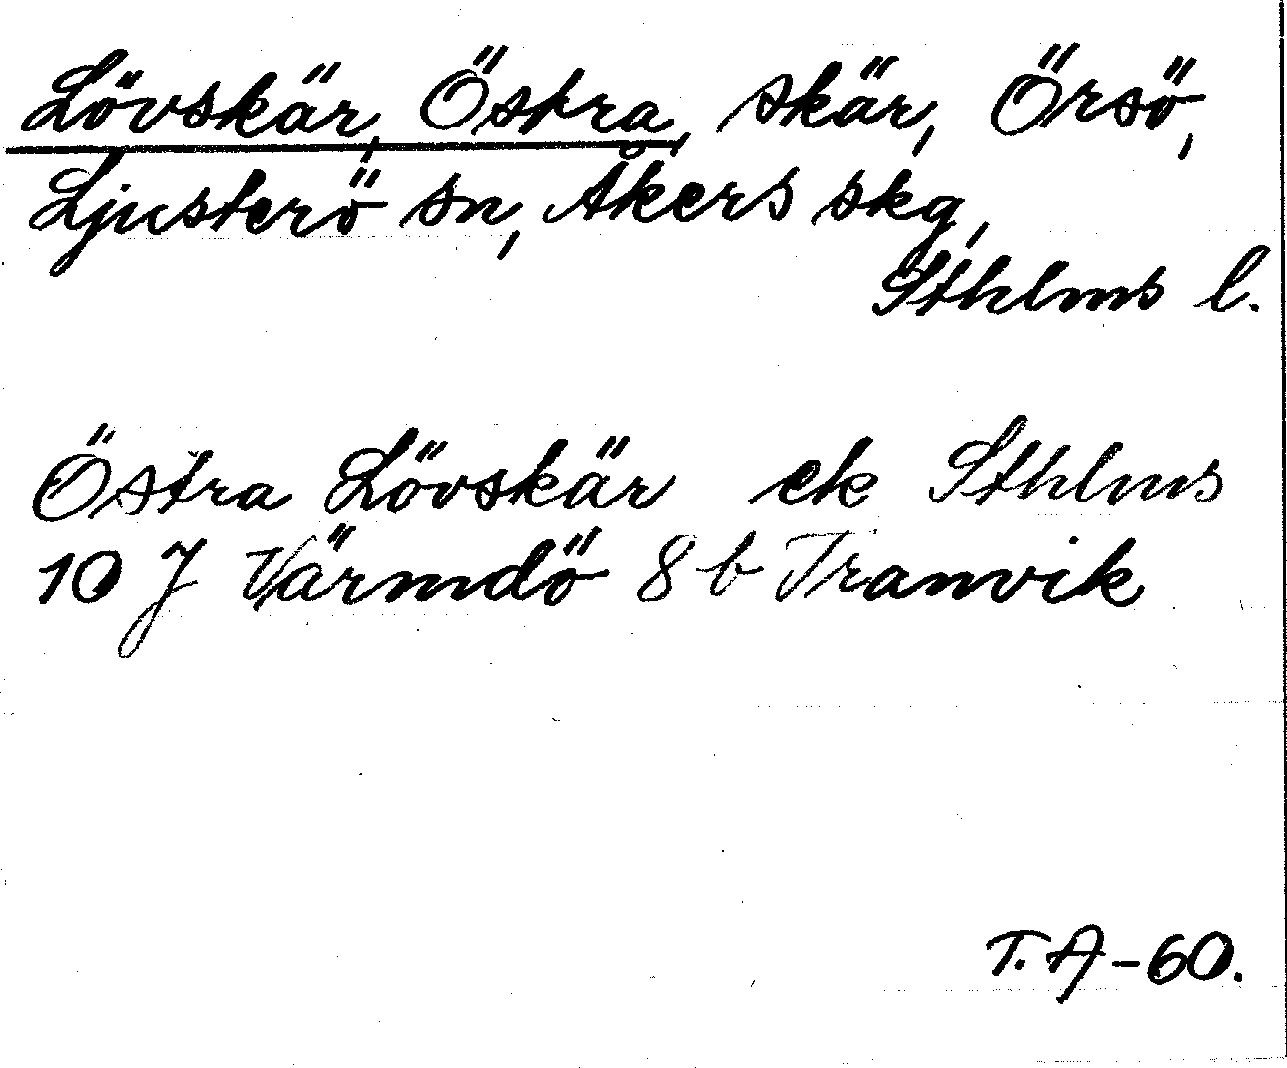 Lövskär, Östra, skär, Örsö,
Ljusterö sn, Åkers skg,
Sthlms l.
Östra Lövskär ek Sthlms
10 J Värmdö 8 b Tranvik
T. A-60.